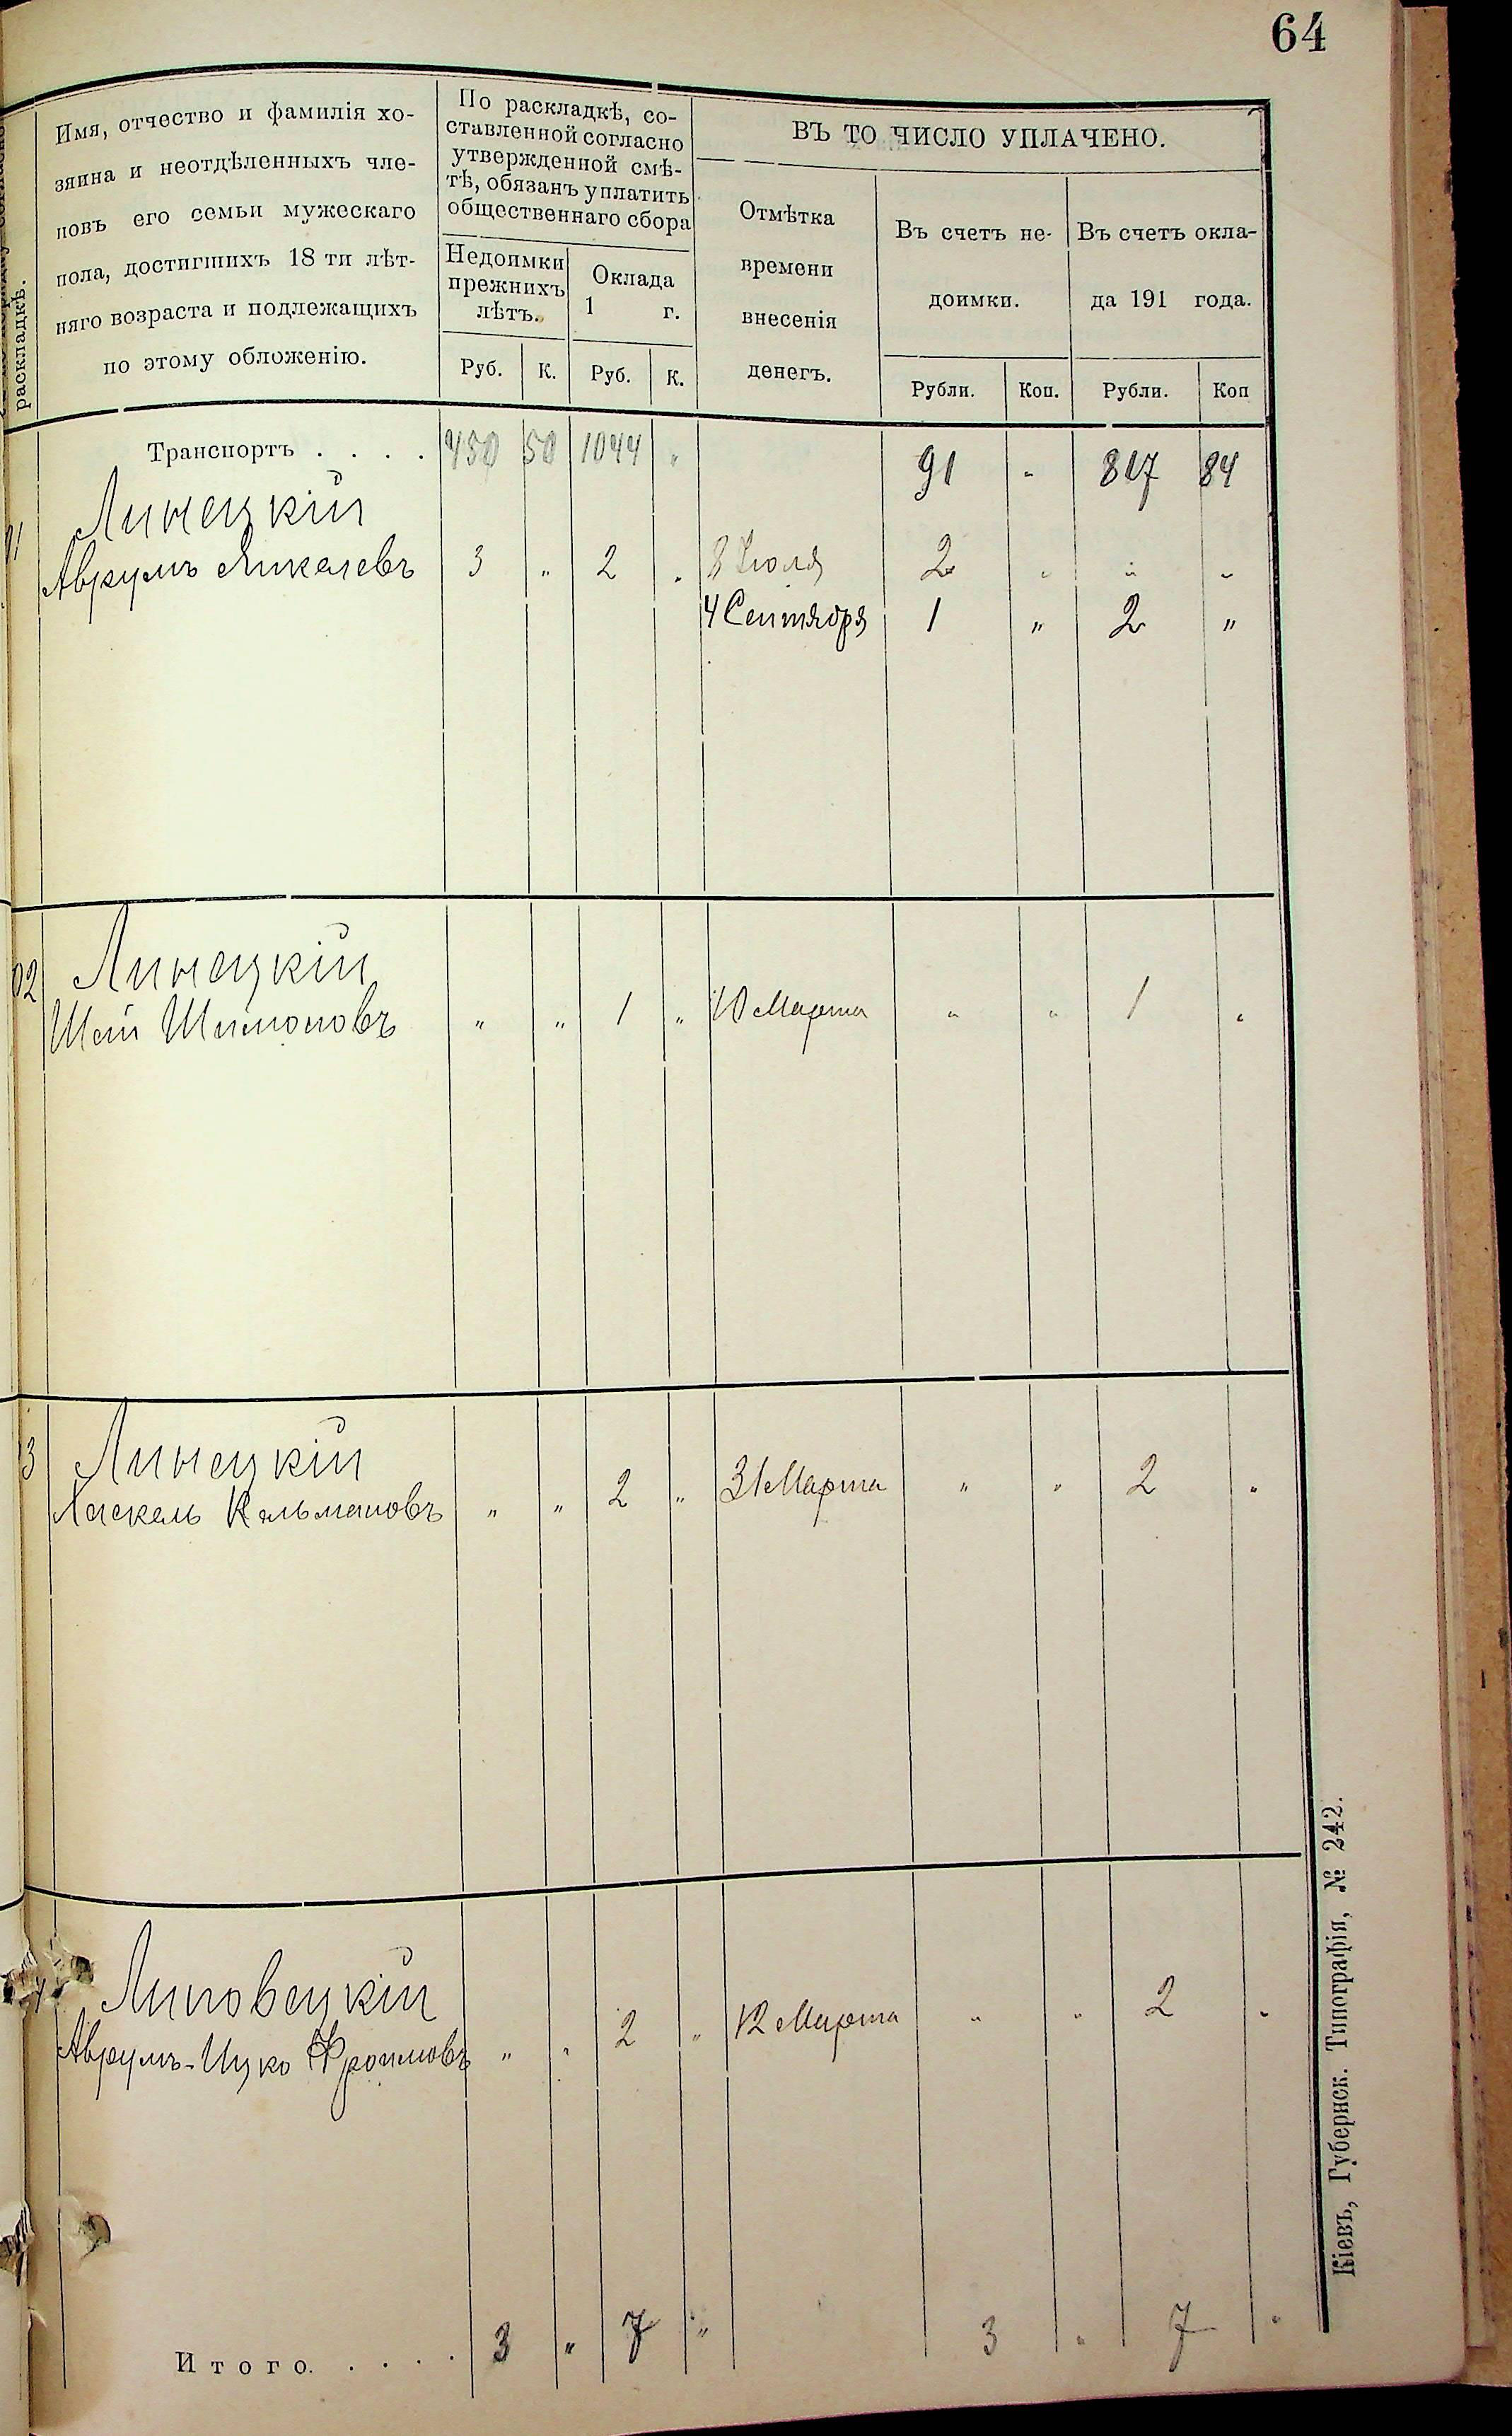 64
раскладкѣ.
Имя, отчество и фамилія хо-
зяина и неотдѣленныхъ чле-
новъ его семьи мужескаго
пола, достигшихъ 18 ти лѣт-
няго возраста и подлежащихъ
по этому обложенію.
По раскладкѣ, со-
ставленной согласно
утвержденной смѣ-
тѣ, обязанъ уплатить
общественнаго сбора
Недоимки
прежнихъ
лѣтъ.
Оклада
1 г.
Руб. К. Руб. К.
ВЪ ТО ЧИСЛО УПЛАЧЕНО.
Отмѣтка
времени
внесенія
денегъ.
Въ счетъ не-
доимки.
Въ счетъ окла-
да 191 года.
Рубли. Коп. Рубли. Коп
Транспортъ . . . . 450 50 1044 " 91 " 817 84
Линецкій
Аврумъ 3 " 2 " 8 Іюля 2 " " "
4 Сентября 1 " 2 "
02 Линецкій
Шая Шимоновъ " " 1 " 10 Марта " " 1 "
3 Линецкій
Хаскель Кельмановъ " " 2 " 31 Марта " " 2 "
Липовецкій
Аврумъ-Ицко Фроимовъ " " 2 " 12 Марта " " 2 "
Итого. . . . . 3 " 7 " 3 " 7 "
Кіевъ, Губернск. Типографія, № 242.